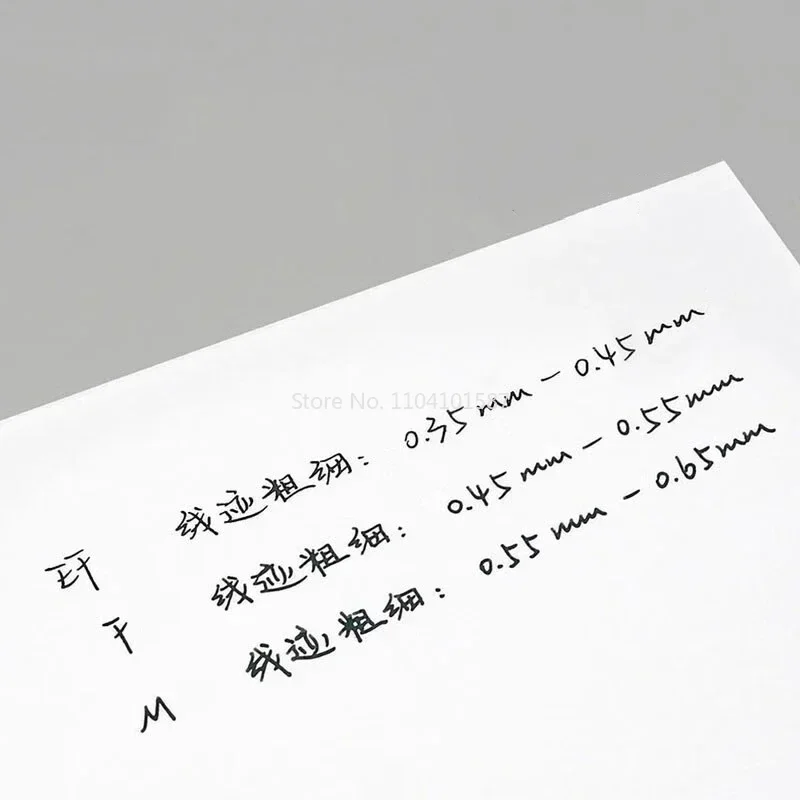 Store No. 1104101587
EF 线迹粗细: 0.35mm - 0.45mm
F 线迹粗细: 0.45mm - 0.55mm
M 线迹粗细: 0.55mm - 0.65mm